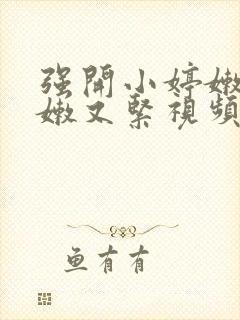 强開小婷嫩
嫩又緊視頻
鱼有有